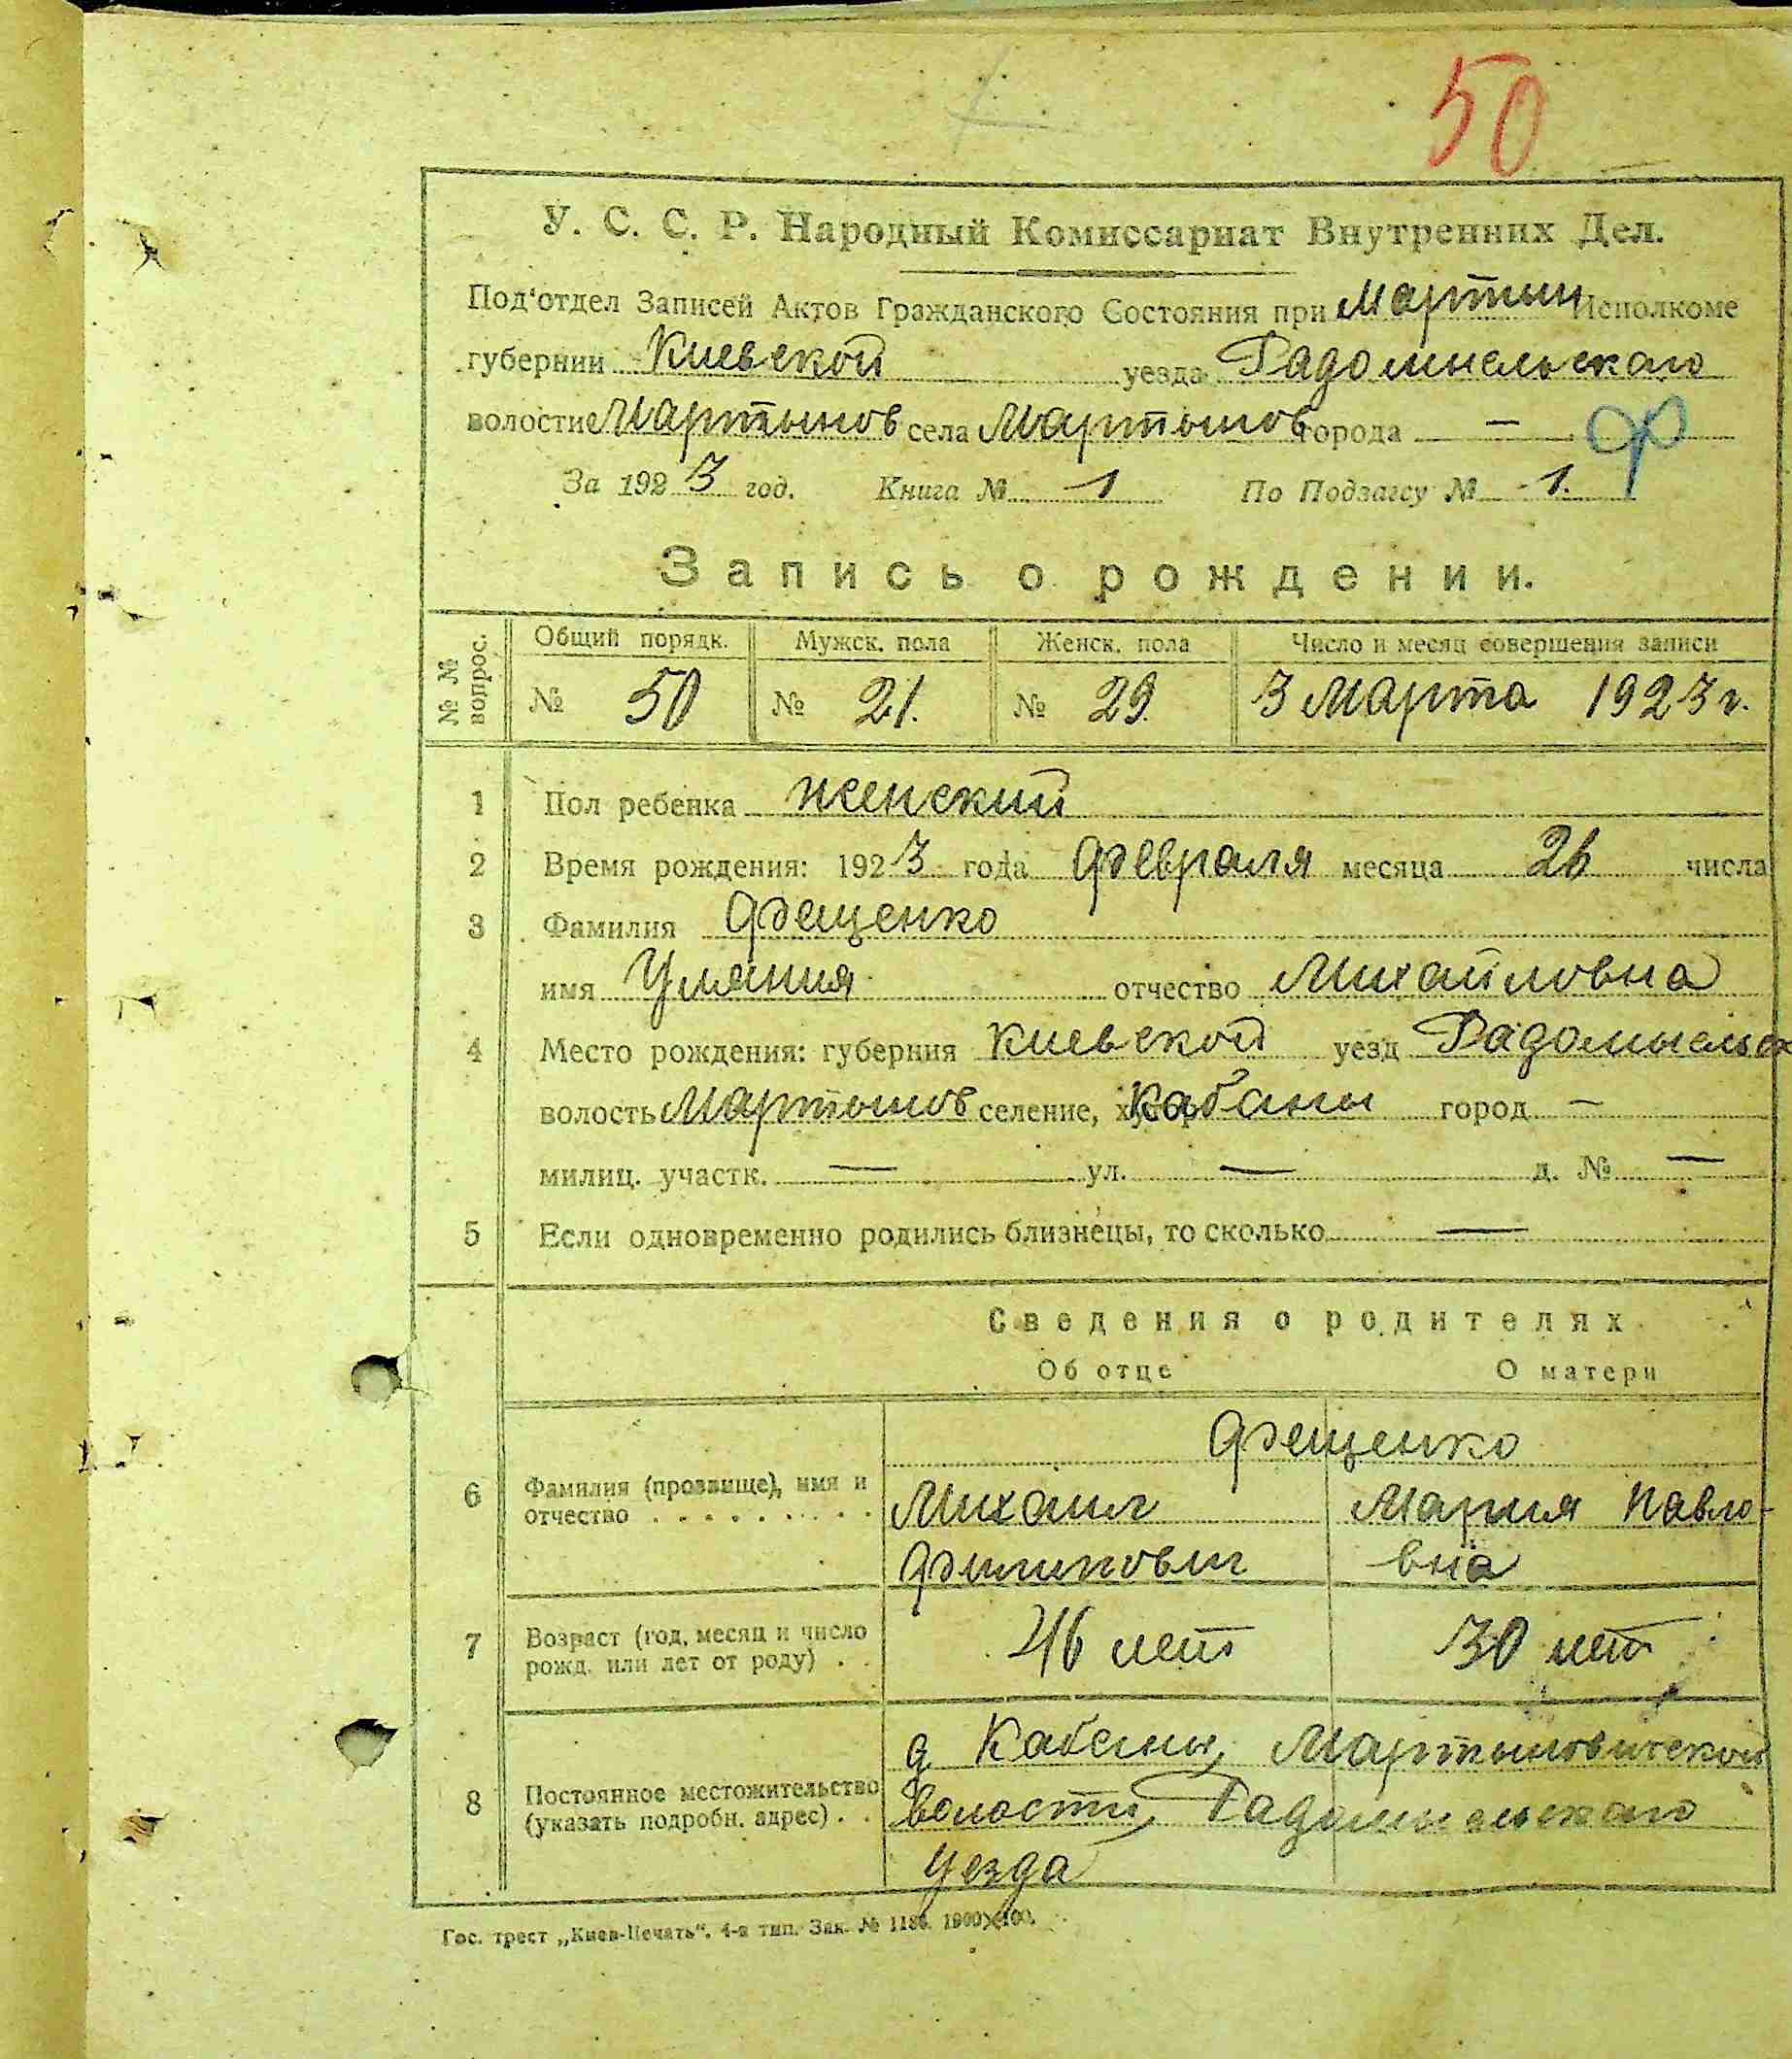 50
У. С. С. Р. Народный Комиссариат Внутренних Дел.
Под'отдел Записей Актов Гражданского Состояния при Мартын Исполкоме
губернии Киевской уезда Радомысльского
волости Мартынов села Мартынов города —
За 1923 год. Книга № 1 По Подзагсу № 1.
Запись о рождении.
№ № вопрос. Общий порядк. Мужск. пола Женск. пола Число и месяц совершения записи
№ 50 № 21. № 29. 3 Марта 1923 г.
1 Пол ребенка женский
2 Время рождения: 1923 года Февраля месяца 26 числа
3 Фамилия Фещенко
имя Уляния отчество Михайловна
4 Место рождения: губерния Киевской уезд Радомысльск
волость Мартынов селение, Кабаны город —
милиц. участк. — ул. — д. № —
5 Если одновременно родились близнецы, то сколько —
Сведения о родителях
Об отце О матери
Фещенко
6 Фамилия (прозвище), имя и отчество Михаил Мария Павло-
Филипович вна
7 Возраст (год, месяц и число рожд. или лет от роду) 46 лет 30 лет
д Кабаны, Мартыновичской
8 Постоянное местожительство (указать подробн. адрес) Волости, Радомысльского
Уезда
Гос. трест „Киев-Печать". 4-я тип. Зак. №